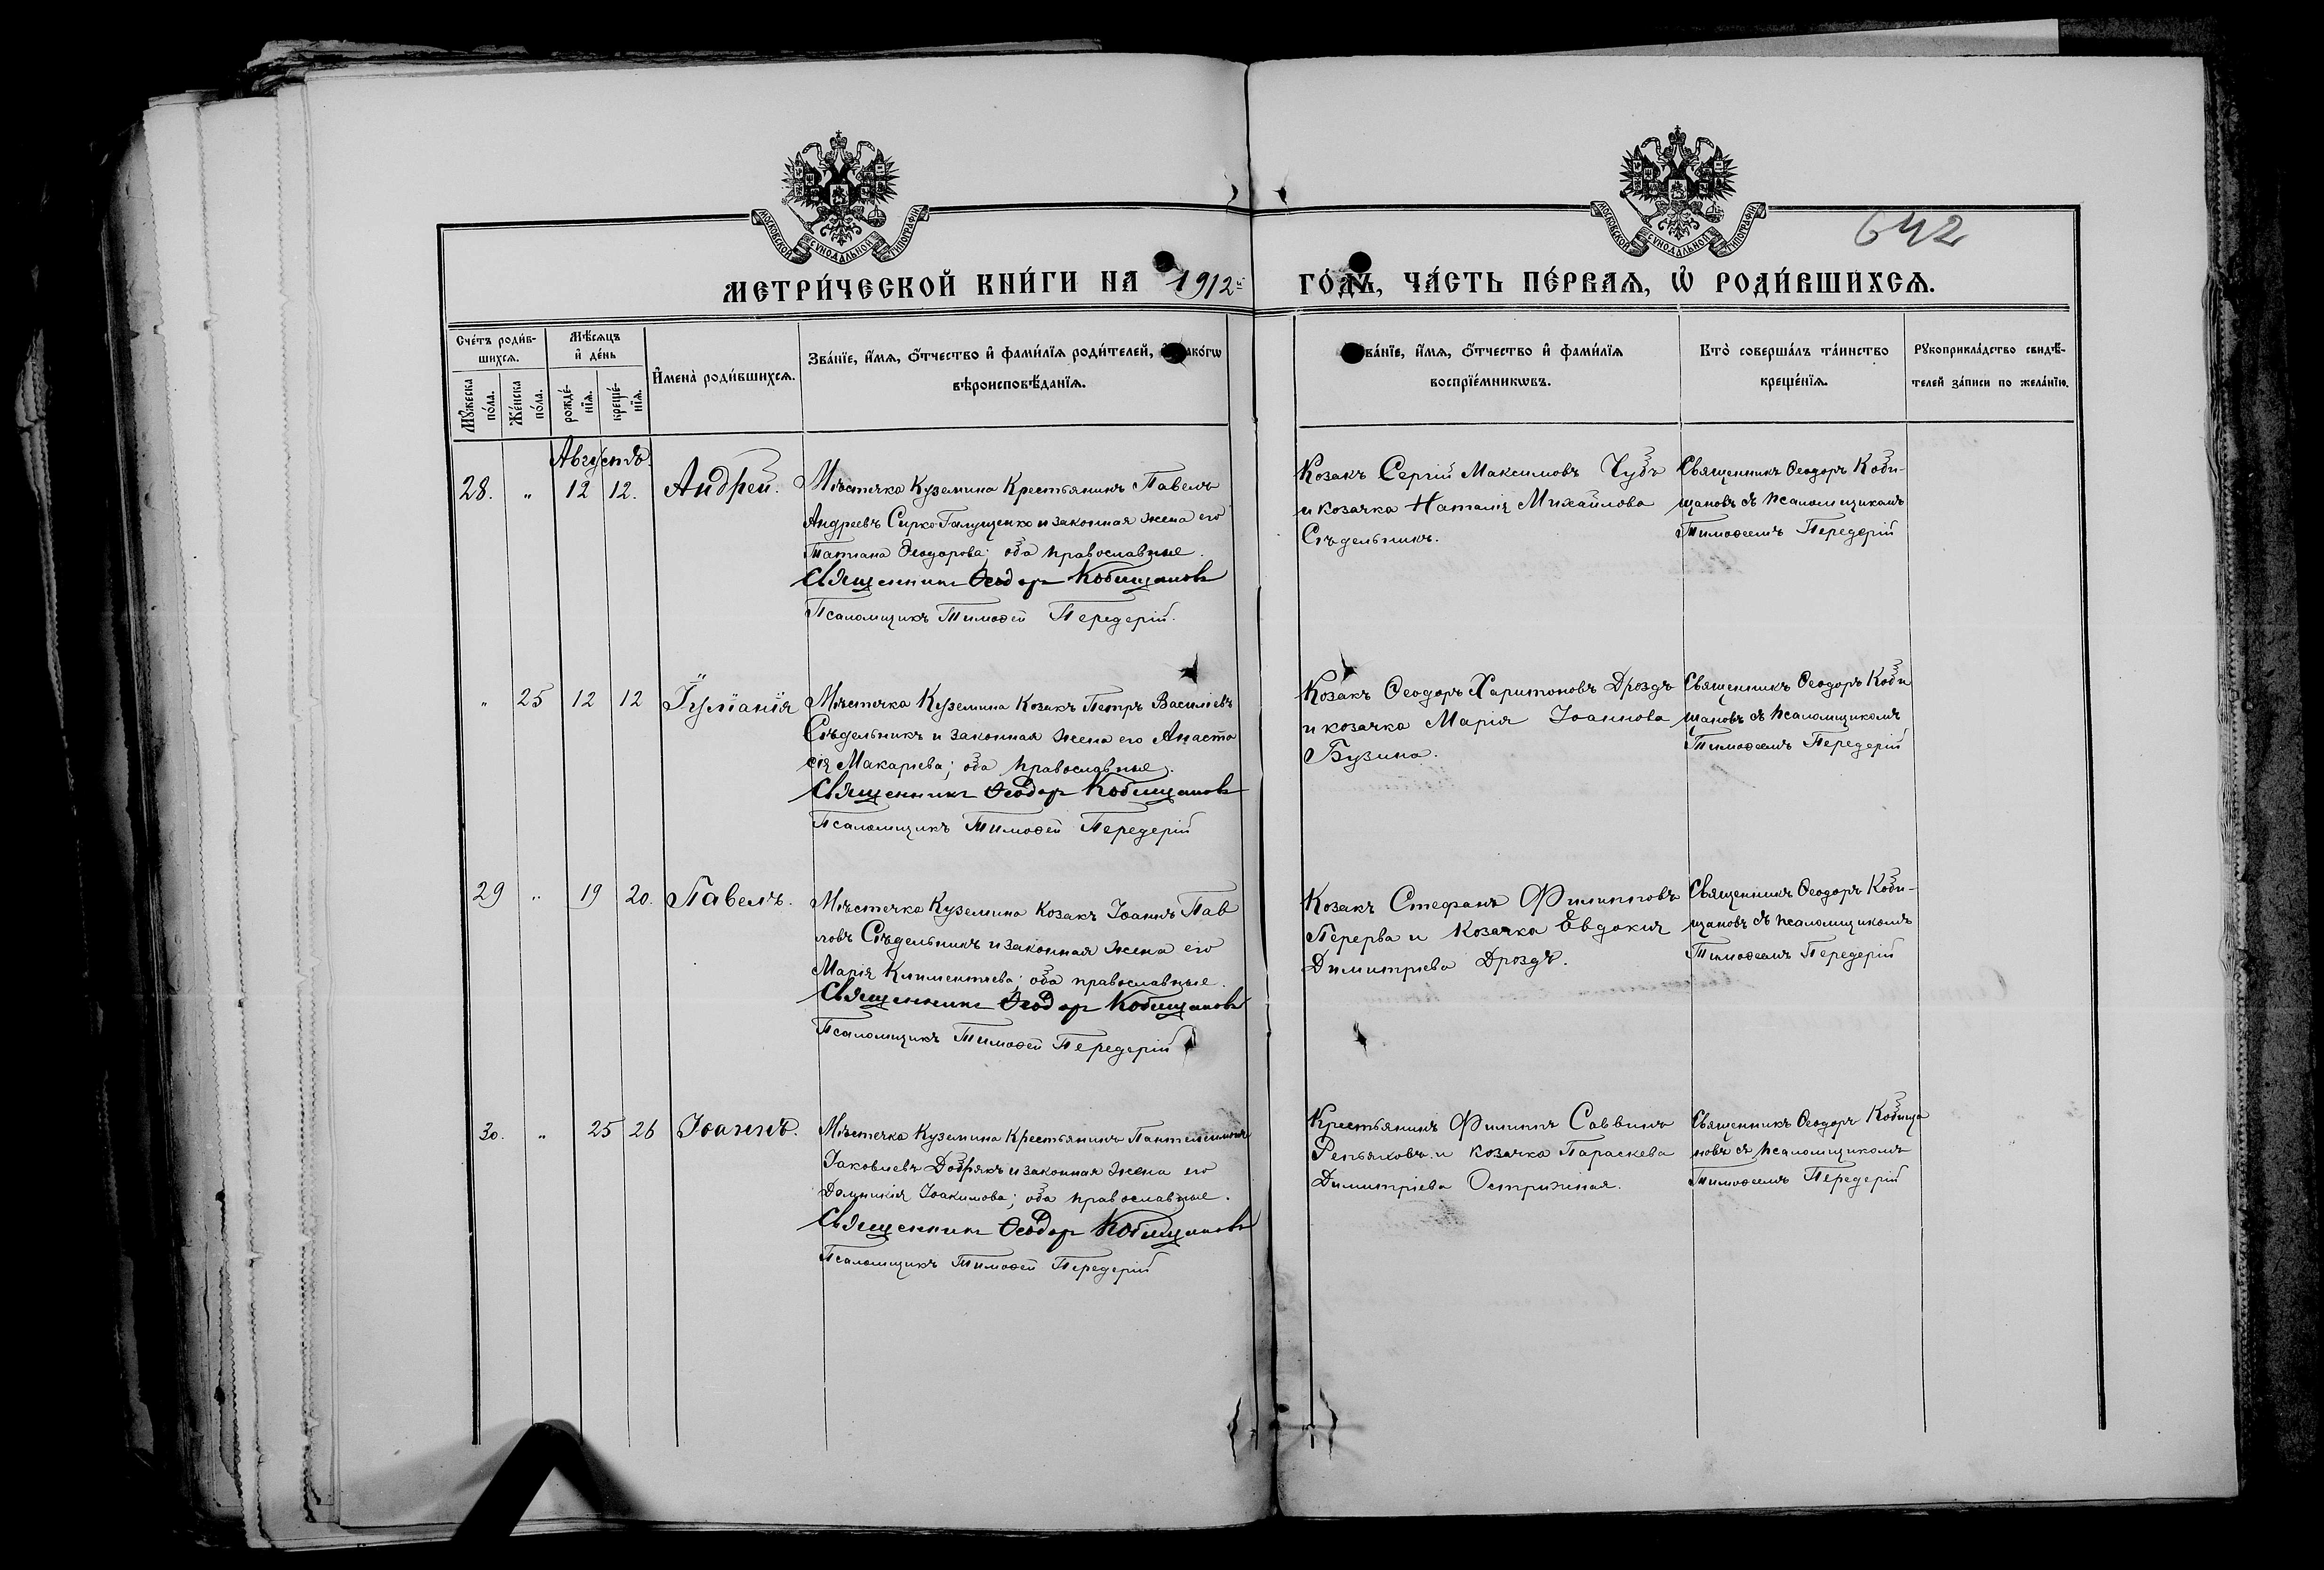 МОСКОВСКОЙ СѴНОДАЛЬНОЙ ТИПОГРАФІИ
МОСКОВСКОЙ СѴНОДАЛЬНОЙ ТИПОГРАФІИ
642
МЕТРИ́ЧЕСКОЙ КНИ́ГИ НА 1912й ГО́ДЪ, ЧА́СТЬ ПЕ́РВАѦ, Ѡ҆ РОДИ́ВШИХСѦ.
Сче́тъ роди́в-
шихсѧ.
Мѣ́сѧцъ
и҆ де́нь
Мꙋ́жеска
по́ла.
Же́нска
по́ла.
рожде́-
нїѧ.
креще́-
нїѧ.
И҆мена̀ роди́вшихсѧ.
Зва́нїе, и҆́мѧ, ѻ҆́тчество и҆ фами́лїѧ роди́телей,
вѣроисповѣ́данїѧ.
и҆́мѧ, ѻ҆́тчество и҆ фами́лїѧ
воспрїе́мникѡвъ.
Кто̀ соверша́лъ та́инство
креще́нїѧ.
Рꙋкоприкла́дство свидѣ́-
телей за́писи по жела́нїю.
Августъ.
28. " 12 12. Андрей.
Мѣстечка Куземина Крестьянинъ Павелъ
Андреевъ Сирко-Галущенко и законная жена его
Татіана Ѳеодорова; оба православные.
Священникъ Ѳеодоръ Кобищановъ
Псаломщикъ Тимоѳей Передерій.
Козакъ Сергій Максимовъ Чубъ
и козачка Наталія Михайлова
Сѣдельникъ.
Священникъ Ѳеодоръ Коби-
щановъ съ псаломщикомъ
Тимоѳеемъ Передерій
" 25 12 12 Іуліанія
Мѣстечка Куземина Козакъ Петръ Василіевъ
Сѣдельникъ и законная жена его Анаста
сія Макаріева; оба православные.
Священникъ Ѳеодоръ Кобищановъ
Псаломщикъ Тимоѳей Передерій
Козакъ Ѳеодоръ Харитоновъ Дроздъ
и козачка Марія Іоаннова
Бузина.
Священникъ Ѳеодоръ Коби
щановъ съ псаломщикомъ
Тимоѳеемъ Передерій
29 " 19 20. Павелъ.
Мѣстечка Куземина Козакъ Іоаннъ Пав
ловъ Сѣдельникъ и законная жена его
Марія Климентіева; оба православные.
Священникъ Ѳеодоръ Кобищановъ
Псаломщикъ Тимоѳей Передерій
Козакъ Стефанъ Филипповъ
Перерва и Козачка Евдокія
Димитріева Дроздъ.
Священникъ Ѳеодоръ Коби-
щановъ съ псаломщикомъ
Тимоѳеемъ Передерій
30. " 25 26 Іоаннъ.
Мѣстечка Куземина Крестьянинъ Пантелеимонъ
Іаковлевъ Добрякъ и законная жена его
Домникія Іоакимова; оба православные.
Священникъ Ѳеодоръ Кобищановъ
Псаломщикъ Тимоѳей Передерій
Крестьянинъ Филиппъ Саввинъ
Репьяховъ и козачка Параскева
Димитріева Острижная.
Священникъ Ѳеодоръ Кобища
новъ съ псаломщикомъ
Тимоѳеемъ Передерій